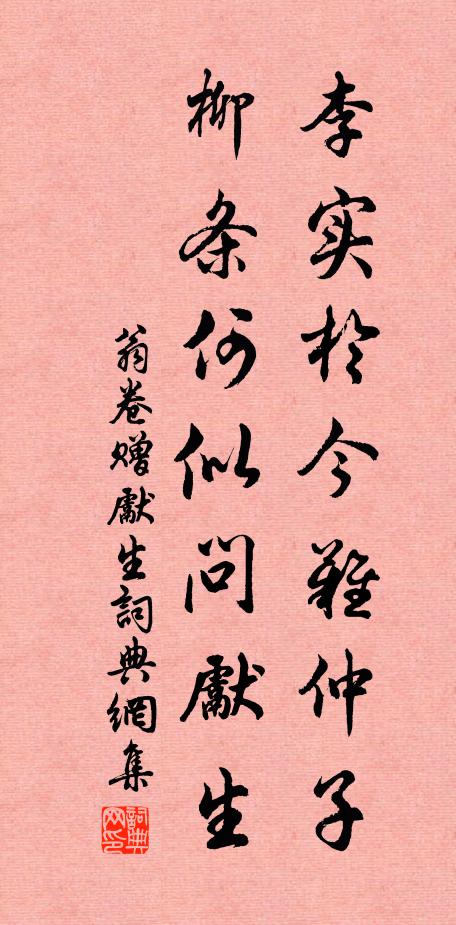 李实於今难仲子
柳条何似问獻生
翁卷赠獻生詞典網集
詞典网印